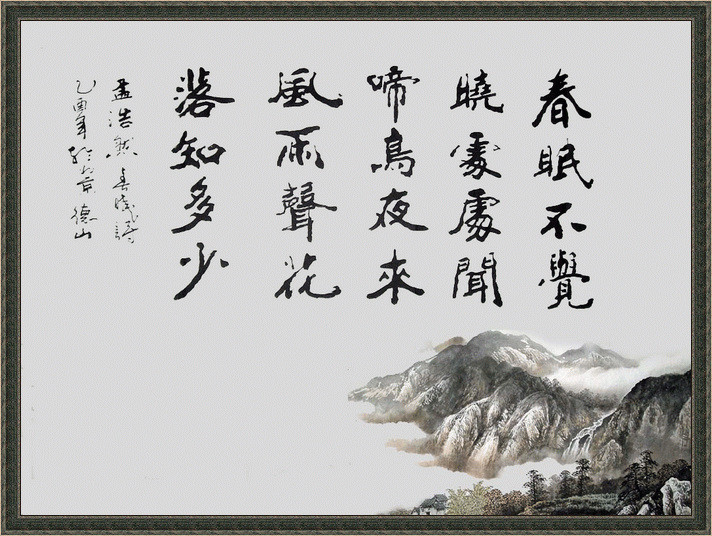 春眠不覺
曉處處聞
啼鳥夜來
風雨聲花
落知多少
孟浩然春曉詩
乙酉年於北京德山